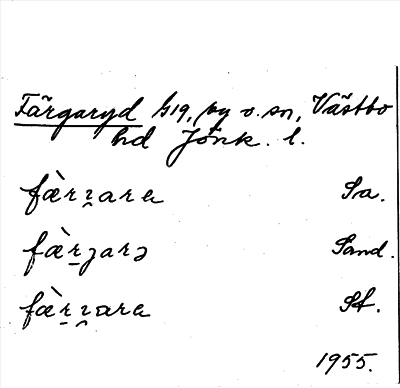 Färgaryd G19, by o. sn, Västbo
hd Jönk. l.
fæ̀rɀ̯ara Sa.
fæ̀r̠ȷarə Sand.
fæ̀r̠ɀ̯ara Sf.
1955.